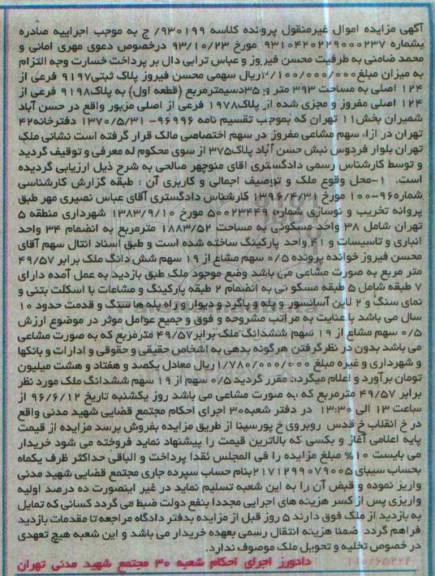 آگهی مزایده اموال غیرمنقول پرونده کلاسه ۹۳۰۱۹۹/ ج به موجب اجراییه صادره
بشماره ۹۳۱۰۴۲۰۲۲۹۰۰۰۲۳۷ مورخ ۹۳/۱۰/۲۳ درخصوص دعوی مهری امانی و
محمد ضامنی به طرفیت محسن فیروز و عباس ترابی دال بر پرداخت خسارت وجه التزام
به میزان مبلغ ۲/۱۰۰/۰۰۰/۰۰۰ریال سهمی محسن فیروز پلاک ثبتی۹۱۹۷ فرعی از
۱۲۴ اصلی به مساحت ۳۹۳ متر و ۳۵دسیمترمربع (قطعه اول) به پلاک۹۱۹۸ فرعی از
۱۲۴ اصلی مفروز و مجزی شده از پلاک۱۹۷۸ فرعی از اصلی مزبور واقع در حسن آباد
شمیران بخش۱۱ تهران که بموجب تقسیم نامه ۹۶۹۹۶- ۱۳۷۰/۵/۳۱ دفترخانه۴۲
تهران در ازاء سهم مشاعی مفروز در سهم اختصاصی مالک قرار گرفته است نشانی ملک
تهران بلوار فردوس نبش حسن آباد پلاک۳۷۵ از سوی محکوم له معرفی و توقیف گردید
و توسط کارشناس رسمی دادگستری اقای منوچهر صالحی به شرح ذیل ارزیابی گردیده
است. ۱-محل وقوع ملک و توصیف اجمالی و کاربری آن : طبقه گزارش کارشناسی
شماره۹۶-۱۰۰ مورخ کارشناس دادگستری آقای عباس نصیری مهر طبق
پروانه تخریب و نوسازی شماره ۵۰۰۲۳۴۴۹ مورخ ۱۳۸۳/۹/۱۰ شهرداری منطقه ۵
تهران شامل ۳۸ واحد مسکونی به مساحت ۱۸۸۳/۵۲ مترمربع به انضمام ۳۴ واحد
انباری و تاسیسات و واحد پارکینگ ساخته شده است و طبق اسناد انتقال سهم آقای
محسن فیروز خوانده پرونده ۰/۵ سهم مشاع از ۱۹ سهم شش دانگ ملک برابر ۴۹/۵۷
متر مربع به صورت مشاعی می باشد وضع موجود ملک طبق بازدید به عمل آمده دارای
۷ طبقه شامل ۵ طبقه مسکونی به انضمام ۲ طبقه پارکینگ و مشاعات با اسکلت بتنی و
نمای سنگ و ۲ لاین آسانسور و پله و پاگرد و دیوار و راه پله ها سنگ و قدمت حدود ۱۰
سال می باشد با عنایت به مراتب مشروحه و فوق و جمیع عوامل موثر در موضوع ارزش
۰/۵ سهم مشاع از ۱۹ سهم ششدانگ ملک برابر۴۹/۵۷ مترمربع که به صورت مشاعی
می باشد بدون در نظر گرفتن هرگونه بدهی به اشخاص حقیقی و حقوقی و ادارات و بانکها
و شهرداری و غیره مبلغ ۱/۷۸۰/۰۰۰/۰۰۰ریال معادل یکصد و هفتاد و هشت میلیون
تومان برآورد و اعلام میگردد. مقرر گردید۰/۵ سهم از ۱۹ سهم ششدانگ ملک مورد نظر
برابر ۴۹/۵۷ مترمربع که به صورت مشاعی می باشد روز یکشنبه تاریخ ۹۶/۶/۱۲ از
ساعت ۱۳ الی ۱۳:۳۰ در دفتر شعبه۳۰ اجرای احکام مجتمع قضایی شهید مدنی واقع
در خ انقلاب خ قدس روبروی خ پورسینا از طریق مزایده بفروش برسد مزایده از قیمت
پایه اعلامی آغاز و بکسی که بالاترین قیمت را پیشنهاد نماید فروخته می شود خریدار
می بایست ۱۰% مبلغ مزایده را فی المجلس نقدا پرداخت و الباقی حداکثر ظرف یکماه
بحساب سیبای ۲۱۷۱۲۹۹۰۷۹۰۰۵بنام حساب سپرده جاری مجتمع قضایی شهید مدنی
واریز نموده و قبض آن را به این شعبه تسلیم نماید در غیر اینصورت ده درصد اولیه
واریزی پس از کسر هزینه های اجرایی مجددا بنفع دولت ضبط می گردد کسانی که تمایل
به بازدید از ملک فوق دارند ۵ روز قبل از مزایده بدفتر دادگاه مراجعه تا مقدمات بازدید
فراهم گردد. ضمنا هزینه انتقال رسمی بعهده خریدار می باشد و این شعبه هیچ تعهدی
در خصوص تخلیه و تحویل ملک موصوف ندارد.
دادورز اجرای احکام شعبه ۳۰ مجتمع شهید مدنی تهران